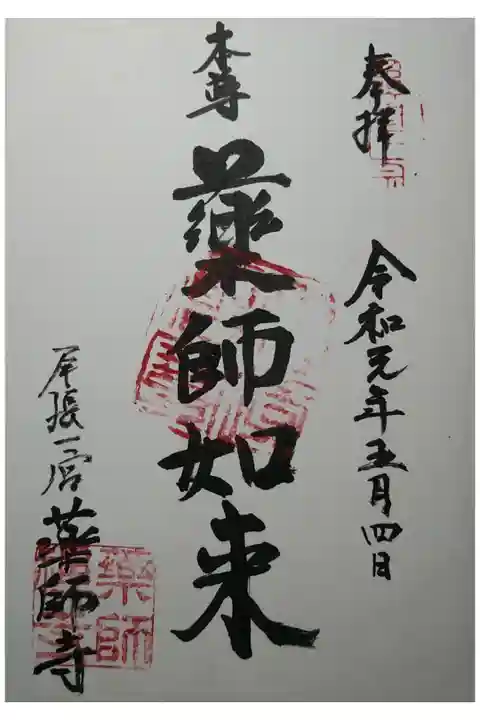 奉拝
令和元年五月四日
本尊
薬師如来
尾張一宮
薬師寺
薬師